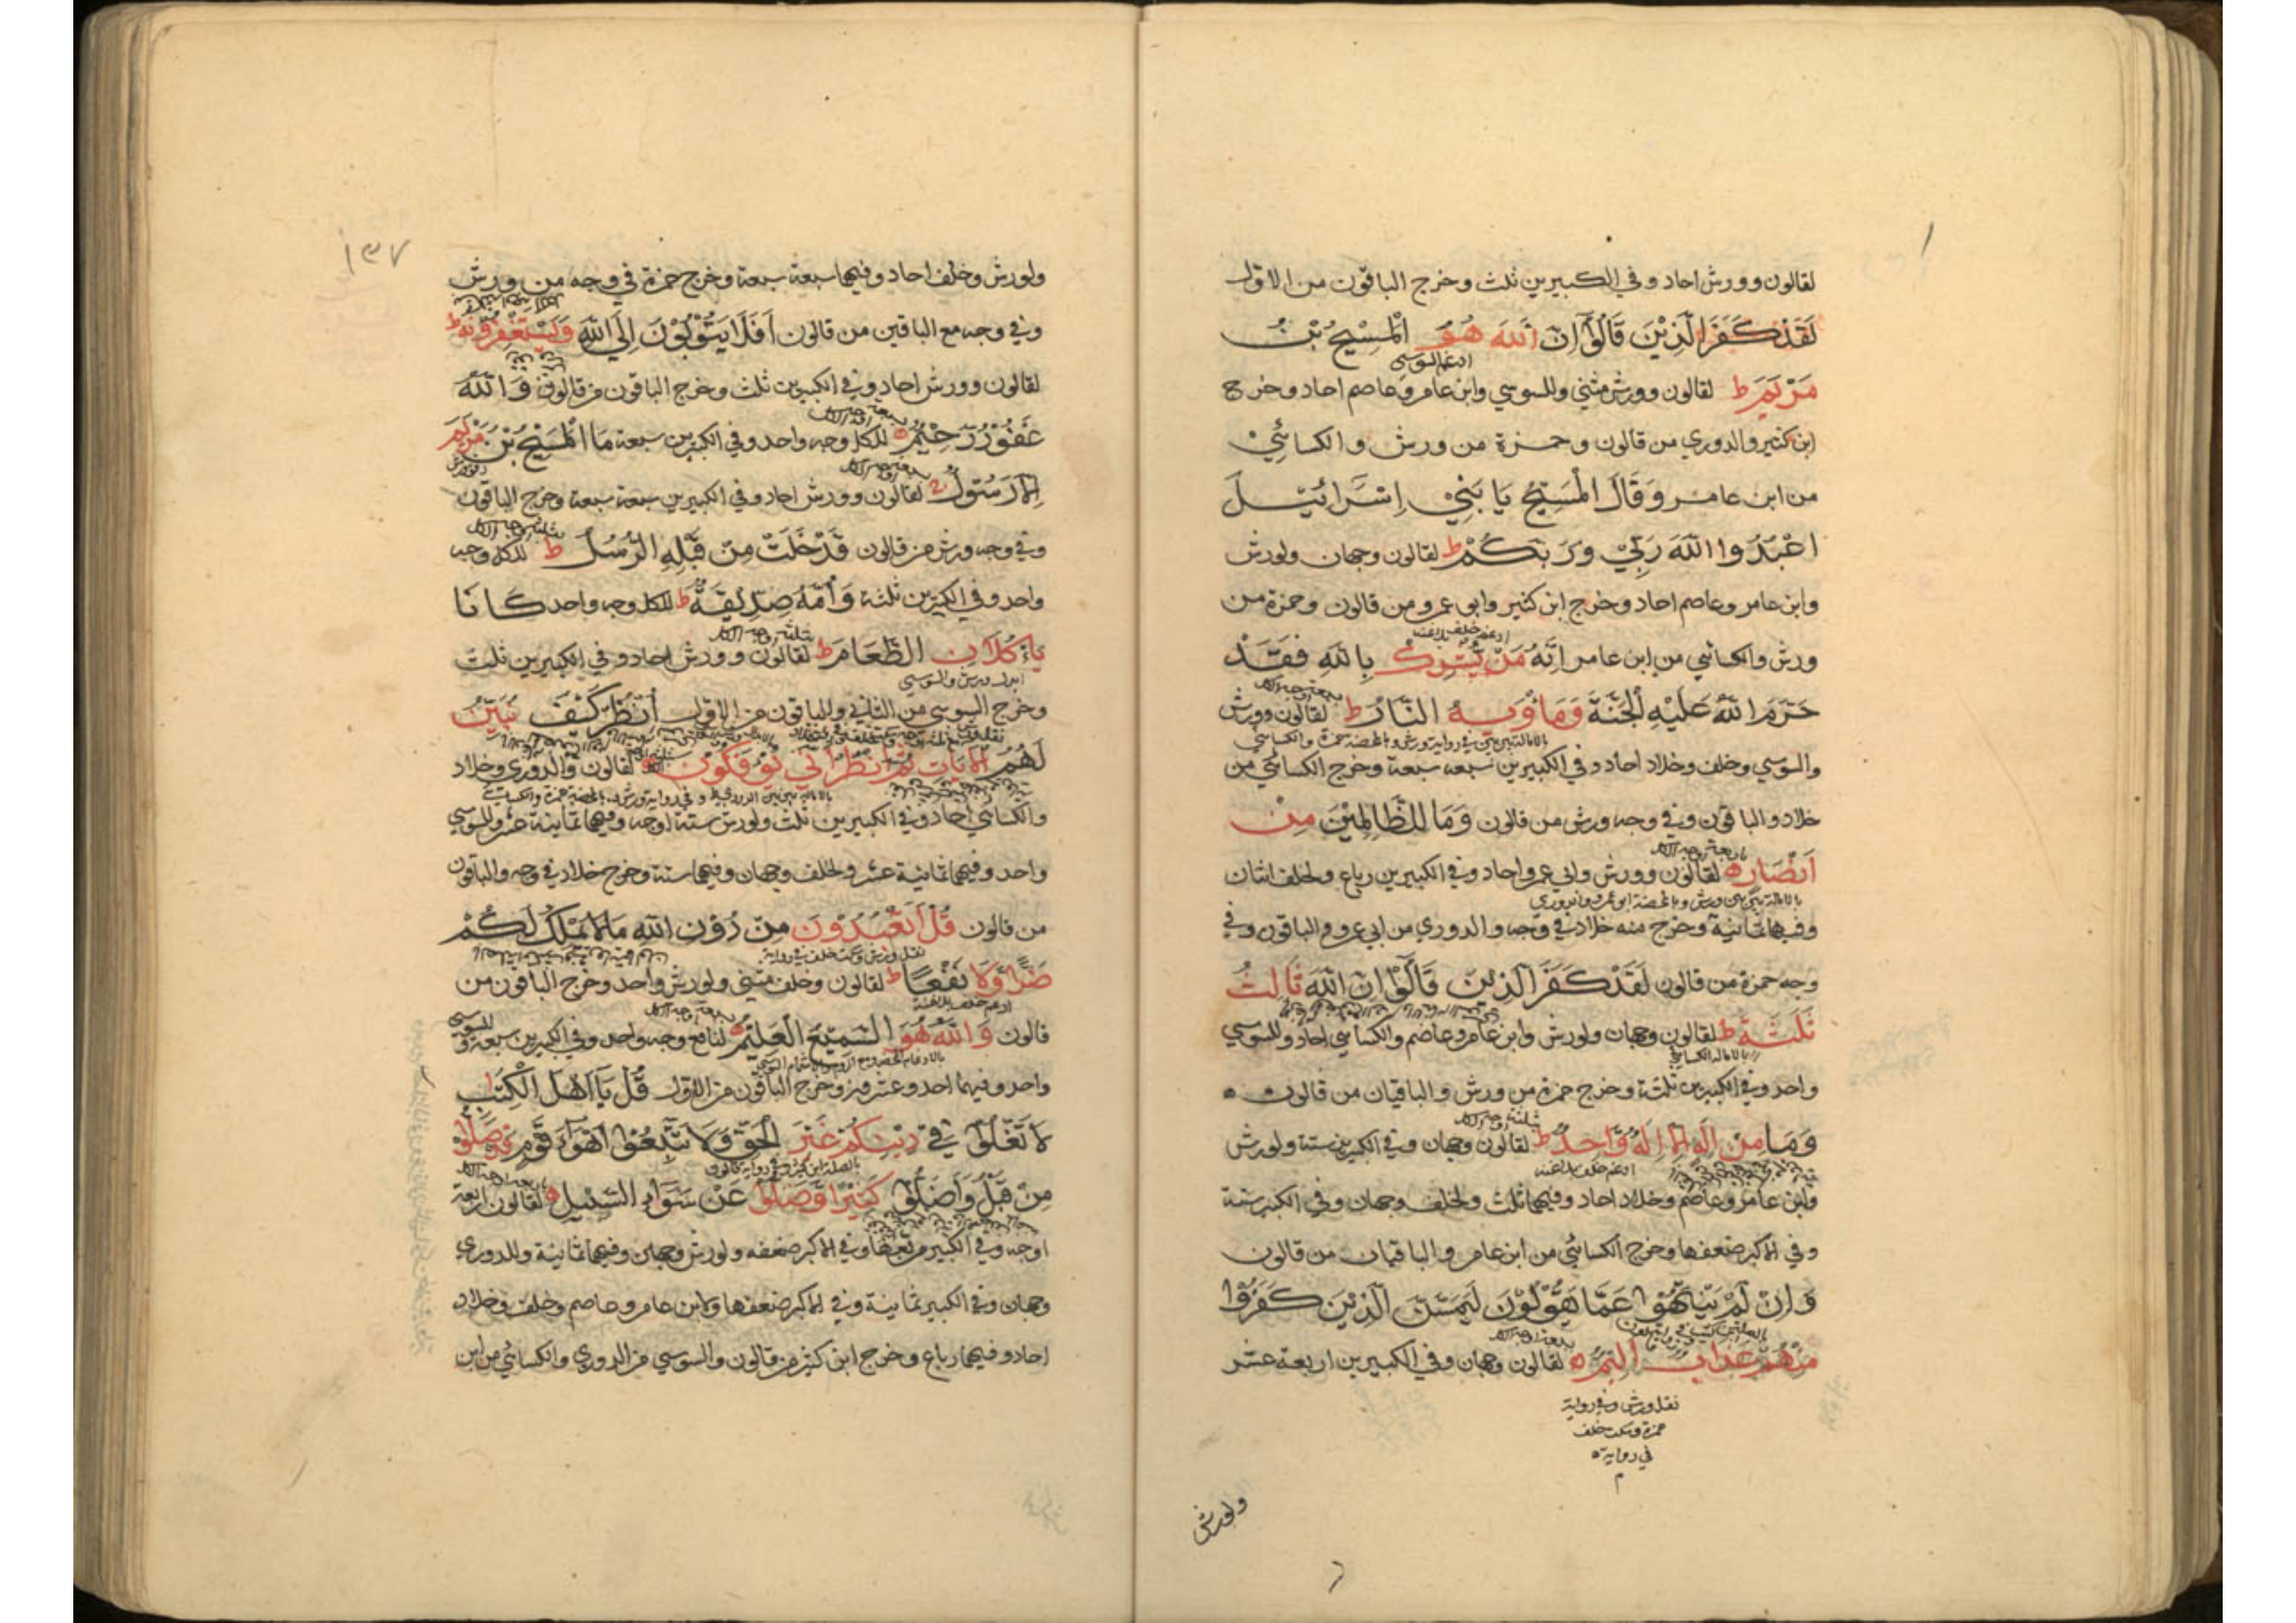 لقالون وورش احاد وفي الكبيرين ثلث وخرج الباقون من الاول
لَقَدْ كَفَرَ الَّذِيْنَ قَالُوْٓا اِنَّ اللّٰهَ هُوَ الْمَسِيْحُ بْنُ
ادغم السوسي
مَرْيَمَ ط لقالون وورش مثنى وللسوسي وابن عامر وعاصم احاد وخرج
ابن كثير والدوري من قالون وحمزة من ورش والكسائي
من ابن عامر وَقَالَ الْمَسِيْحُ يَا بَنِيْٓ اِسْرَائِيْلَ
اعْبُدُوا اللّٰهَ رَبِّيْ وَرَبَّكُمْ ط لقالون وجهان ولورش
وابن عامر وعاصم احاد وخرج ابن كثير وابو عمرو من قالون وحمزة من
ادغم خلف بلاغنه
ورش والكسائي من ابن عامر اِنَّهُ مَنْ يُّشْرِكْ بِاللّٰهِ فَقَدْ
حَرَّمَ اللّٰهُ عَلَيْهِ الْجَنَّةَ وَمَأْوٰىهُ النَّارُ ط لقالون وورش
بالامالة بين بين في رواية ورش وبالمحضه حمزة والكسائي
والسوسي وخلف وخلاد احاد وفي الكبيرين سبعه سبعة وخرج الكسائي من
خلاد والباقون وفي وجه ورش من قالون وَمَا لِلظَّالِمِيْنَ مِنْ
اَنْصَارٍ ه لقالون وورش وابي عمرو احاد وفي الكبيرين رباع ولخلف اثنان
بالامالة بين بين ورش وبالمحضة ابو عمرو والدوري
وفيهما ثمانية وخرج منه خلاد في وجه والدوري من ابي عمرو والباقون وفي
وجه حمزة من قالون لَقَدْ كَفَرَ الَّذِيْنَ قَالُوْٓا اِنَّ اللّٰهَ ثَالِثُ
ثَلٰثَةٍ ط لقالون وجهان ولورش وابن عامر وعاصم والكسائي احاد وللسوسي
بالامالة الكسائي
واحد وفي الكبيرين ثلثة وخرج حمزة من ورش والباقيان من قالون ه
وَمَا مِنْ اِلٰهٍ اِلَّا اِلٰهٌ وَّاحِدٌ ط لقالون وجهان وفي الكبيرين ستة ولورش
ادغم خلف بلاغنه
وابن عامر وعاصم وخلاد احاد وفيهما ثلث ولخلف وجهان وفي الكبير ستة
وفي الاكبر ضعفها وخرج الكسائي من ابن عامر والباقيان من قالون
وَاِنْ لَّمْ يَنْتَهُوْا عَمَّا يَقُوْلُوْنَ لَيَمَسَّنَّ الَّذِيْنَ كَفَرُوْا
مِنْهُمْ عَذَابٌ اَلِيْمٌ ه لقالون وجهان وفي الكبيرين اربعة عشر
نقل ورش وفي رواية
حمزة وسكت خلف
في رواية ه
ولورش
١٣٧
ولورش وخلف احاد وفيهما سبعة سبعة وخرج حمزة في وجه من ورش
وفي وجه مع الباقين من قالون اَفَلَا يَتُوْبُوْنَ اِلَى اللّٰهِ وَيَسْتَغْفِرُوْنَهُ ط
لقالون وورش احاد وفي الكبيرين ثلث وخرج الباقون من قالون وَاللّٰهُ
غَفُوْرٌ رَّحِيْمٌ ه للكل وجه واحد وفي الكبيرين سبعة مَا الْمَسِيْحُ بْنُ مَرْيَمَ
اِلَّا رَسُوْلٌ لقالون وورش احاد وفي الكبيرين سبعة سبعة وخرج الباقون
وفي وجه ورش من قالون قَدْ خَلَتْ مِنْ قَبْلِهِ الرُّسُلُ ط للكل وجه
واحد وفي الكبيرين ثلثة وَاُمُّهُ صِدِّيْقَةٌ ط للكل وجه واحد كَانَا
يَاْكُلَانِ الطَّعَامَ ط لقالون وورش احاد وفي الكبيرين ثلث
ابدل ورش والسوسي
وخرج السوسي من الثاني والباقون من الاول اُنْظُرْ كَيْفَ نُبَيِّنُ
لَهُمُ الْاٰيَاتِ ثُمَّ انْظُرْ اَنّٰى يُؤْفَكُوْنَ ه لقالون والدوري وخلاد
والكسائي احاد وفي الكبيرين ثلث ولورش ستة اوجه وفيهما ثمانية عشر وللسوسي
واحد وفيهما ثمانية عشر ولخلف وجهان وفيهما ستة وخرج خلاد في وجه والباقون
من قالون قُلْ اَتَعْبُدُوْنَ مِنْ دُوْنِ اللّٰهِ مَا لَا يَمْلِكُ لَكُمْ
نقل ورش وسكت خلف في رواية
ضَرًّا وَّلَا نَفْعًا ط لقالون وخلف مثنى ولورش واحد وخرج الباقون من
ادغم خلف بلاغنة
قالون وَاللّٰهُ هُوَ السَّمِيْعُ الْعَلِيْمُ ه لنافع وجه واحد وفي الكبيرين سبعة وللسوسي
واحد وفيهما احد وعشرين وخرج الباقون من الاول قُلْ يَا اَهْلَ الْكِتٰبِ
لَا تَغْلُوْا فِيْ دِيْنِكُمْ غَيْرَ الْحَقِّ وَلَا تَتَّبِعُوْٓا اَهْوَآءَ قَوْمٍ قَدْ ضَلُّوْا
بالصلة ابن كثير وفي رواية قالون
مِنْ قَبْلُ وَاَضَلُّوْا كَثِيْرًا وَّضَلُّوْا عَنْ سَوَآءِ السَّبِيْلِ ه لقالون اربعة
اوجه وفي الكبير مربعها وفي الاكبر ضعفه ولورش وجهين وفيهما ثمانية وللدوري
وجهان وفي الكبير ثمانية وفي الاكبر ضعفها ولابن عامر وعاصم وخلف وخلاد
احاد وفيهما رباع وخرج ابن كثير من قالون والسوسي من الدوري والكسائي من ابن